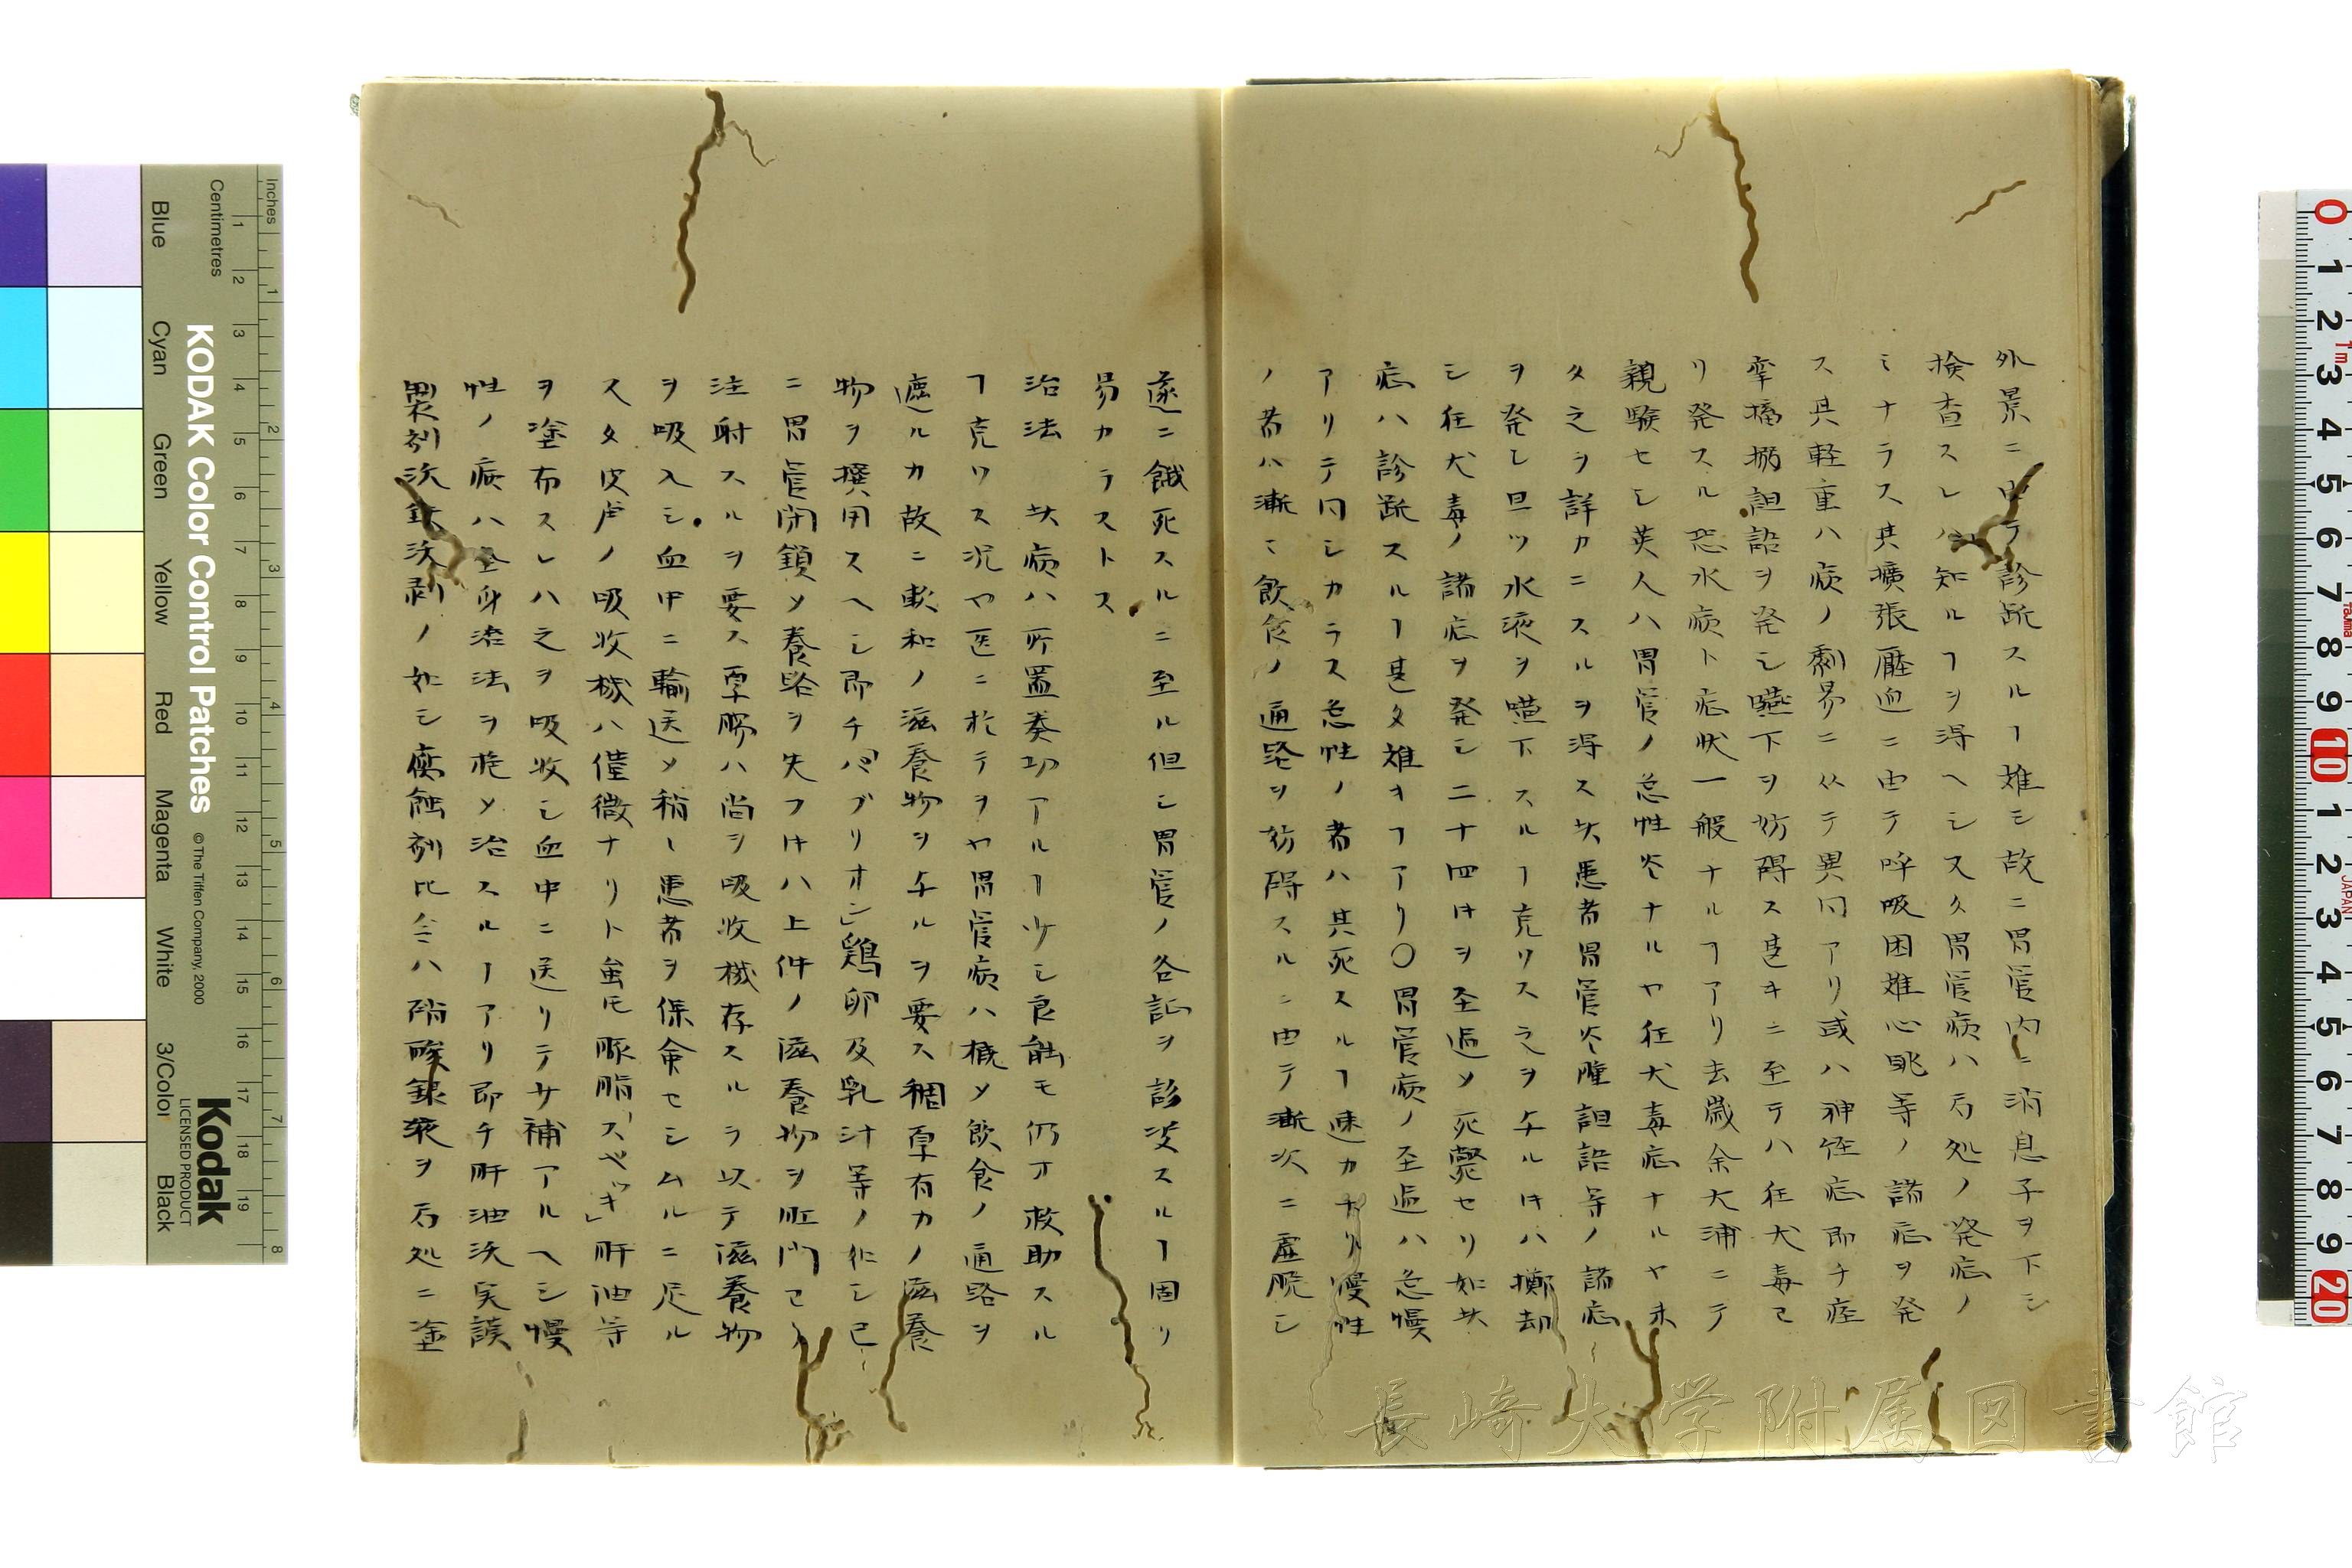 外景ニ由テ診断スルヿ難シ故ニ胃管内ニ消息子ヲ下シ
検査スレハ知ルヿヲ得ヘシ又久胃管病ハ局処ノ発症ノ
ミナラス其擴張壓血ニ由テ呼吸困難心眺等ノ諸症ヲ発
ス其軽重ハ病ノ劇易ニ从テ異同アリ或ハ神経症即チ痙
攣搐搦譫語ヲ発シ嚥下ヲ妨碍ス甚キニ至テハ狂犬毒ヨ
リ発スル恐水病ト症状一般ナルヿアリ去歳余大浦ニテ
親験セシ英人ハ胃管ノ急性炎ナルヤ狂犬毒症ナルヤ未
タ之ヲ詳カニスルヲ得ス此患者胃管炎腫譫語等ノ諸症
ヲ発シ且ツ水液ヲ嚥下スルヿ克ワス之ヲ与ルキハ擲却
シ狂犬毒ノ諸症ヲ発シ二十四时ヲ至過メ死斃セリ如此
症ハ診断スルヿ甚タ難キヿアリ〇胃管病ノ至過ハ急慢
アリテ同シカラス急性ノ者ハ其死スルヿ速カナリ慢性
ノ者ハ漸々飲食ノ通路ヲ妨碍スルニ由テ漸次ニ虚脱シ
遂ニ餓死スルニ至ル但シ胃管ノ各証ヲ診决スルヿ固リ
易カラストス
治法　此病ハ所置奏功アルヿ少シ良能モ仍オ救助スル
ヿ克ワス况ヤ医ニ於テヲヤ胃管病ハ概メ飲食ノ通路ヲ
遮ルカ故ニ軟和ノ滋養物ヲ与ルヲ要ス稠厚有力ノ滋養
物ヲ撰用スヘシ即チ「バブリオン」鶏卵及乳汁等ノ如シ已
ニ胃管閉鎖メ養路ヲ失フキハ上件ノ滋養物ヲ肛門ヨリ
注射スルヲ要ス厚膓ハ尚ヲ吸收機存スルヲ以テ滋養物
ヲ吸入シ血中ニ輸送メ稍々患者ヲ保命セシムルニ足ル
又タ皮膚ノ吸收機ハ僅微ナリト虽𪜈豚脂「スペッキ」肝油等
ヲ塗布スレハ之ヲ吸收シ血中ニ送リテ少補アルヘシ慢
性ノ病ハ全身治法ヲ施メ治スルヿアリ即チ肝油沃実謨
製剤沃鉄沃剥ノ如シ腐蝕剤比会ハ硝酸銀液ヲ局処ニ塗
長崎大学附属図書館
KODAK Color Control Patches
© The Tiffen Company, 2000
Kodak
LICENSED PRODUCT
Inches
Centimetres
Blue
Cyan
Green
Yellow
Red
Magenta
White
3/Color
Black
1 2 3 4 5 6 7 8 9 10 11 12 13 14 15 16 17 18 19
1 2 3 4 5 6 7 8
0 1 2 3 4 5 6 7 8 9 10 1 2 3 4 5 6 7 8 9 20
JAPAN